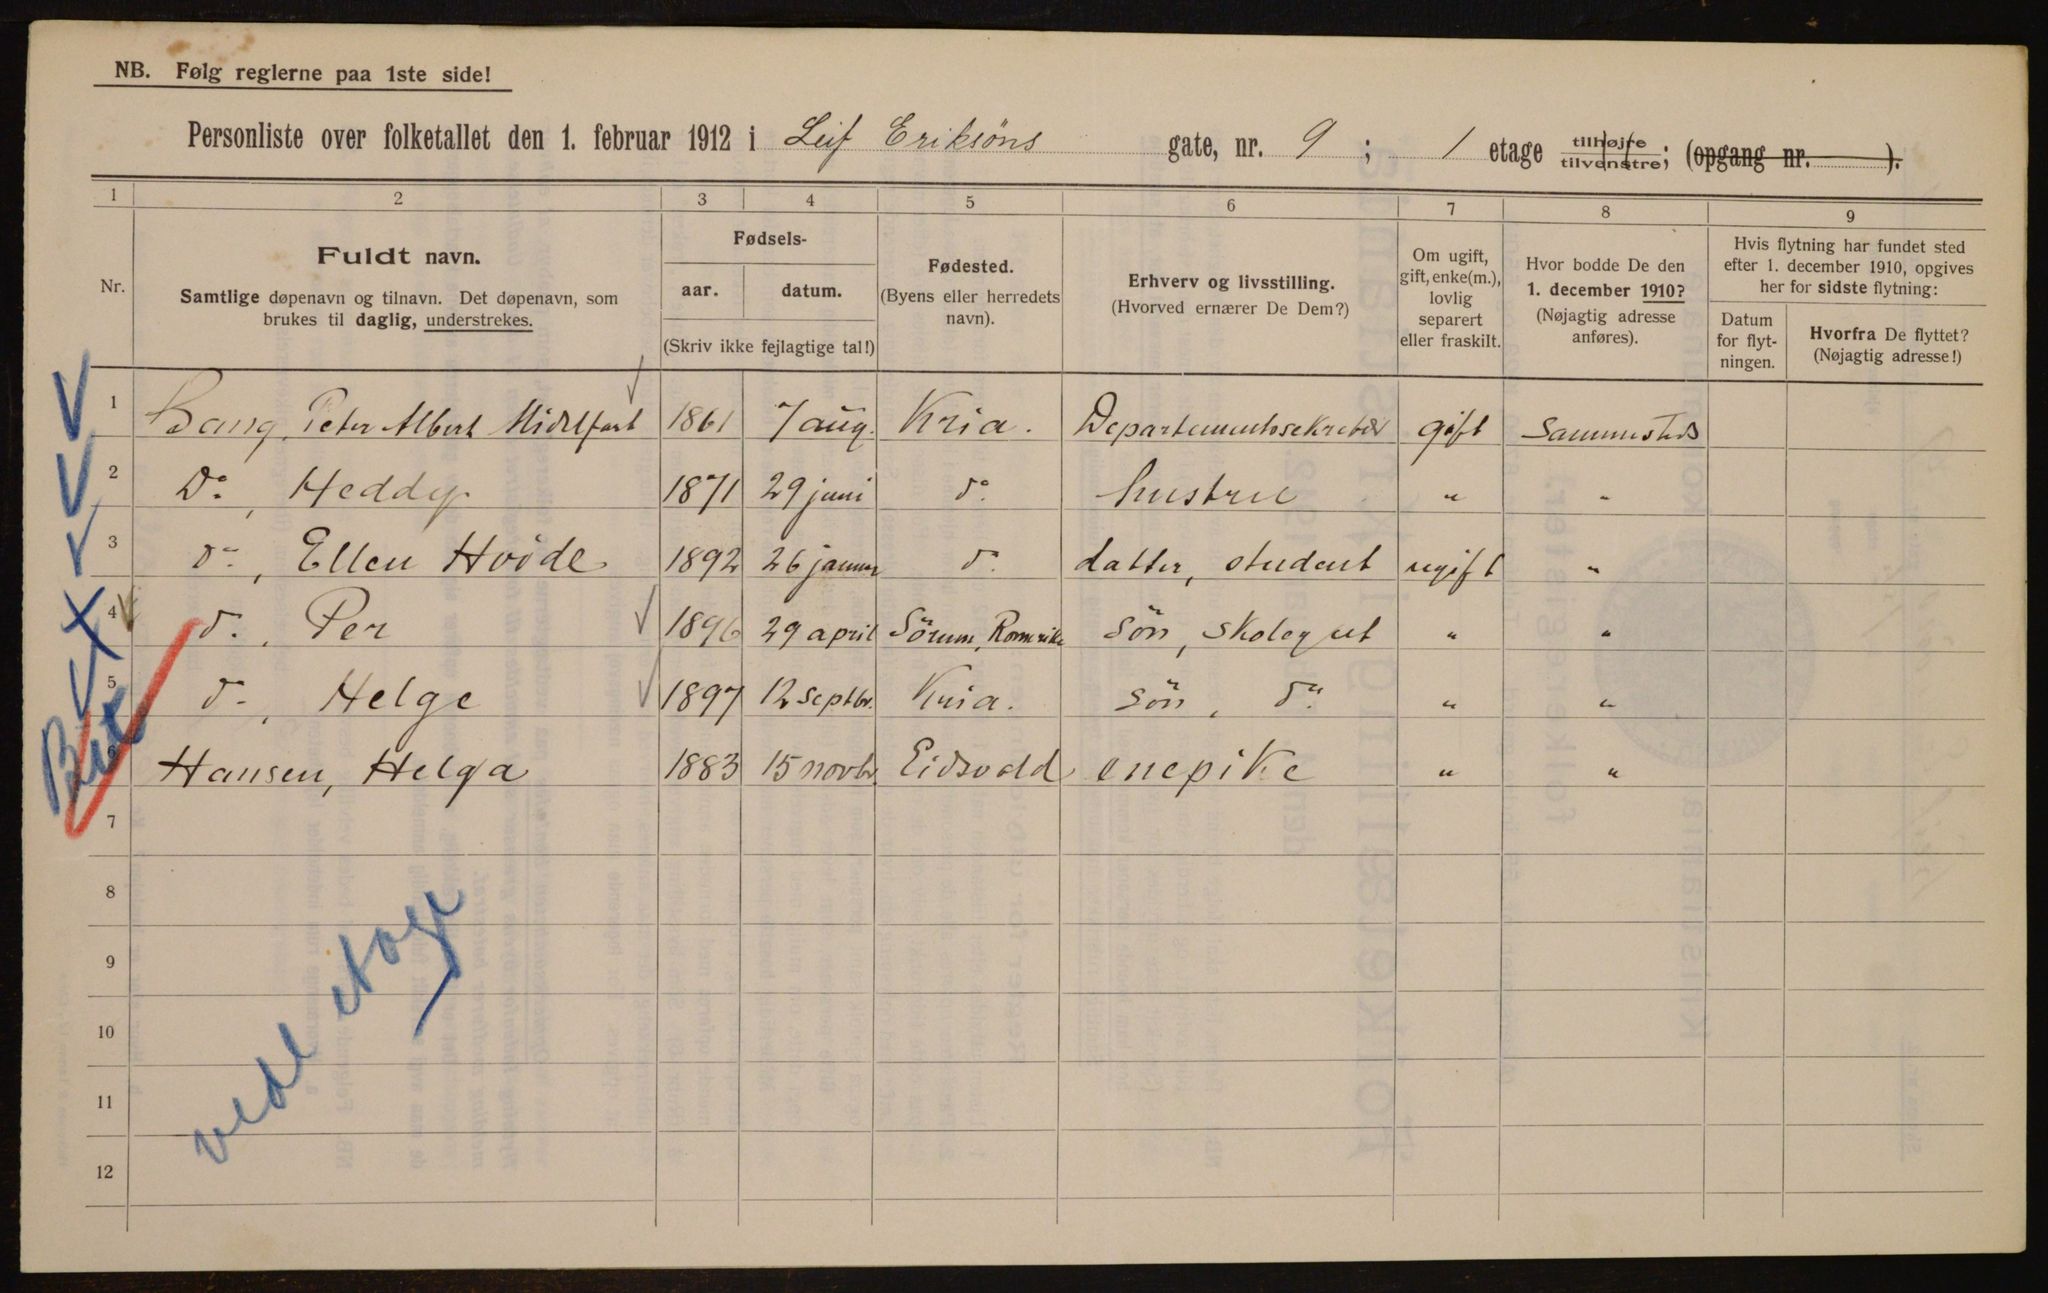 NB. Følg reglerne paa 1ste side!
Personliste over folketallet den 1. februar 1912 i Leif Eriksöns gate, nr. 9 ; 1 etage tilhøjre tilvenstre; (opgang nr. ).
1 2 3 4 5 6 7 8 9
Nr.
Fuldt navn.
Samtlige døpenavn og tilnavn. Det døpenavn, som
brukes til daglig, understrekes.
Fødsels-
aar. datum.
(Skriv ikke fejlagtige tal!)
Fødested.
(Byens eller herredets
navn).
Erhverv og livsstilling.
(Hvorved ernærer De Dem?)
Om ugift,
gift, enke(m.),
lovlig
separert
eller fraskilt.
Hvor bodde De den
1. december 1910?
(Nøjagtig adresse
anføres).
Hvis flytning har fundet sted
efter 1. december 1910, opgives
her for sidste flytning:
Datum
for flyt-
ningen.
Hvorfra De flyttet?
(Nøjagtig adresse!)
1 Bang, Peter Albert Midelfart 1861 7 aug. Kria. Departementssekretær gift Sammesteds
2 Do, Heddy 1871 29 juni do. hustru " "
3 do, Ellen Hvide 1892 26 januar do. datter, student ugift "
4 do, Per 1896 29 april Sörum, Romerike Sön, skolegut " "
5 do, Helge 1897 12 septbr. Kria. Sön, do. " "
6 Hansen, Helga 1883 15 novbr. Eidsvold enepike " "
7
8
9
10
11
12